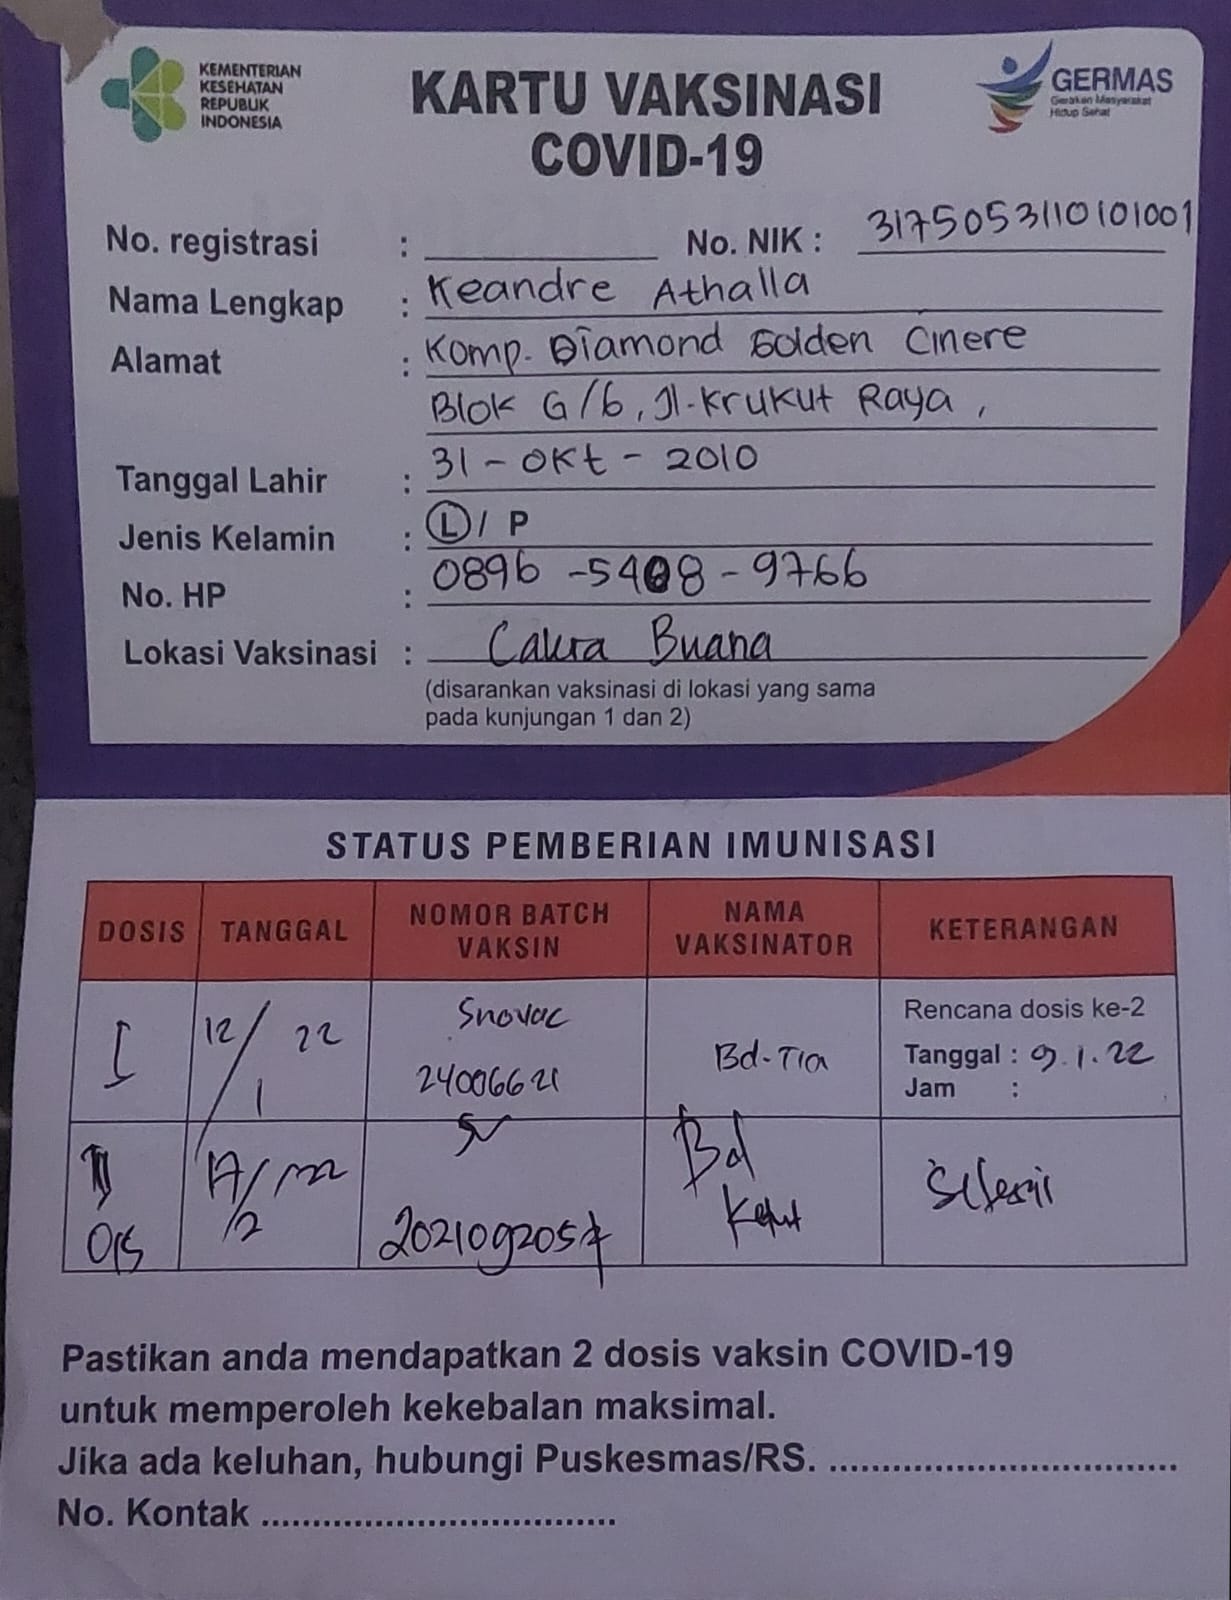 KEMENTERIAN
KESEHATAN
REPUBLIK
INDONESIA
KARTU VAKSINASI
COVID-19
GERMAS
Gerakan Masyarakat
Hidup Sehat
No. registrasi : No. NIK : 3175053110101001
Nama Lengkap : Keandre Athalla
Alamat : Komp. Diamond Golden Cinere
Blok G/6, Jl. Krukut Raya,
Tanggal Lahir : 31 - Okt - 2010
Jenis Kelamin : L / P
No. HP : 0896 - 5408 - 9766
Lokasi Vaksinasi : Cakra Buana
(disarankan vaksinasi di lokasi yang sama
pada kunjungan 1 dan 2)
STATUS PEMBERIAN IMUNISASI
DOSIS TANGGAL NOMOR BATCH VAKSIN NAMA VAKSINATOR KETERANGAN
I 12/1 22 Snovac 24006621 Bd-Tia Rencana dosis ke-2
Tanggal : 9.1.22
Jam :
II 17/2 22 SV 2021092057 Bd Selesai
Pastikan anda mendapatkan 2 dosis vaksin COVID-19
untuk memperoleh kekebalan maksimal.
Jika ada keluhan, hubungi Puskesmas/RS. ..................................
No. Kontak ..................................